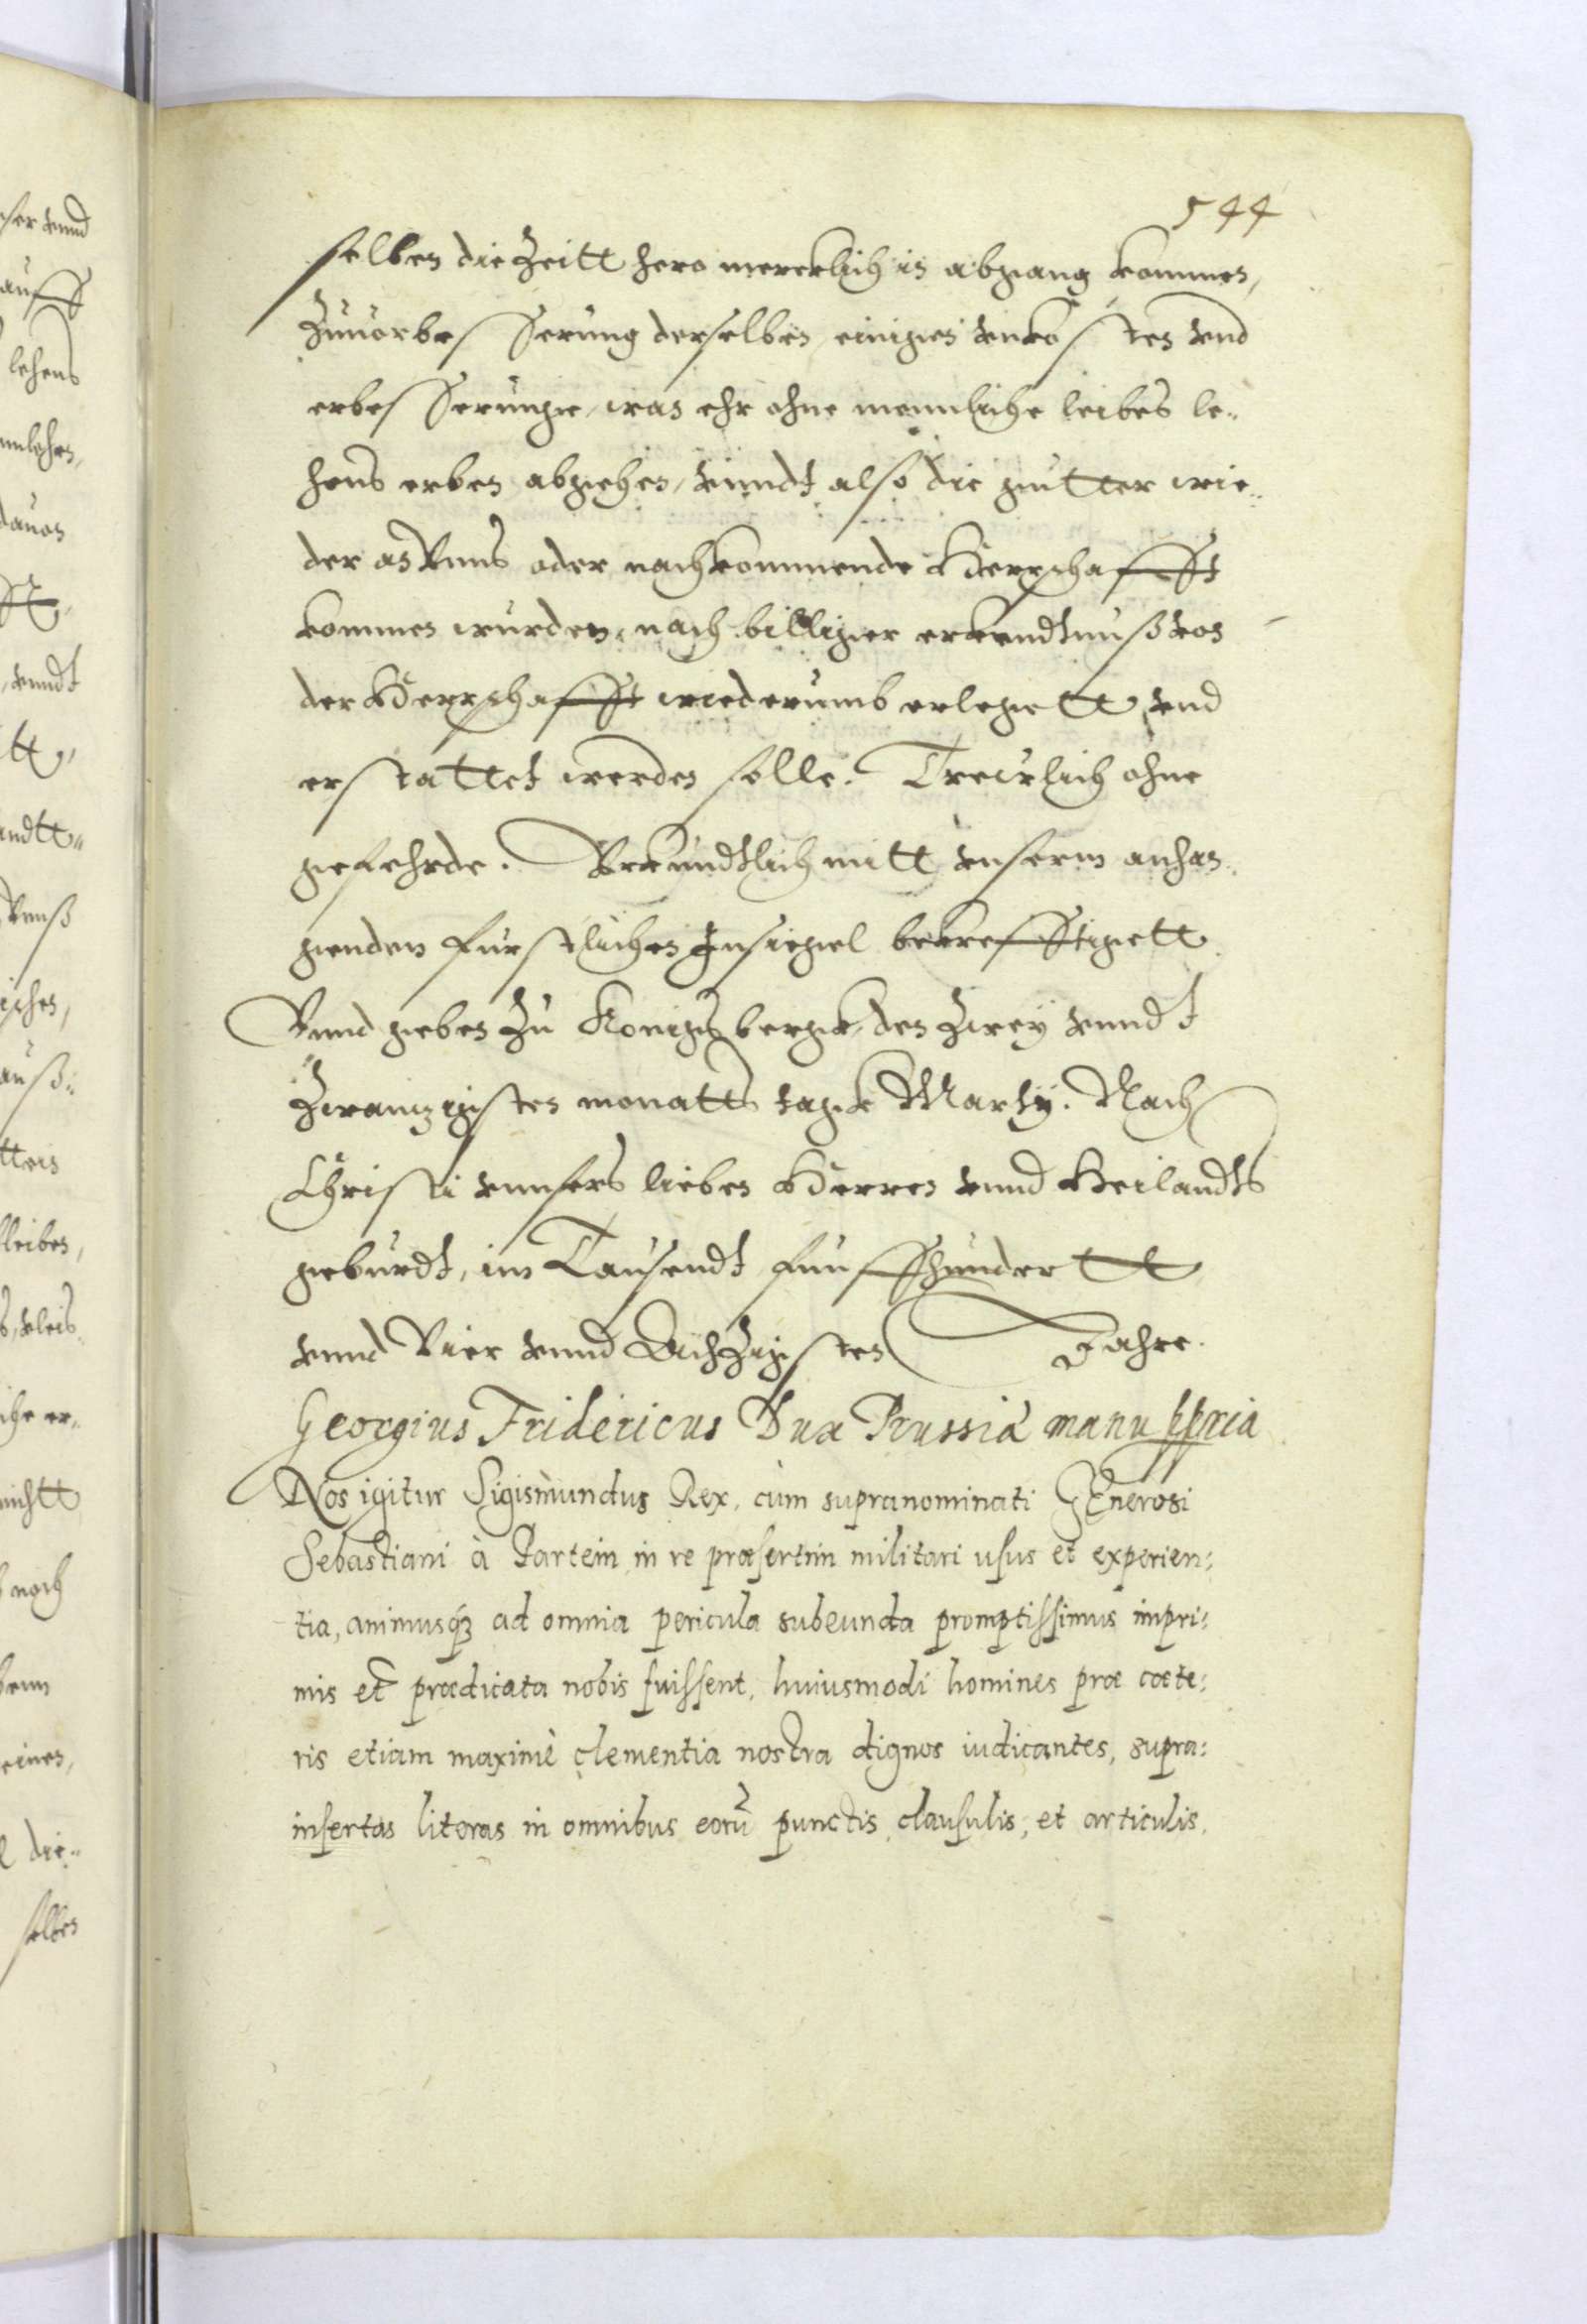 544
selben die Zeitt hero mercklich in abgang kommen,
Zuuorbesserung derselben einigen vnkosten vnd
erbesserunge, was ehr ohne mennliche leibes le-
hens erben abgehen, vnndt also die gutter wie-
der an Vnns oder nachkommende Herrschafft
kommen wurden, nach billiger erkendtnuß von
der Herrschafft wiederumb erlegett vnd
erstattet werden solle. Treulich ohne
gefehrde. Vrkundtlich mitt vnserm anhan-
genden furstlichen Insiegel bekrefftigett.
Vnnd geben Zu Konigsbergk, den Zwey vnndt
Zwanzigsten monatts tagk Marty. Nach
Christi vnnsers lieben Herren vnnd Heilandts
geburdt, im Tausendt funffhundertt
vnnd Vier vnnd AchZigsten Jahre.
Georgius Fridericus Dux Prussiæ manu ppria
Nos igitur Sigismundus Rex, cùm supranominati Generosi
Sebastiani à Partein, in re præsertim militari usus et experien:
tia, animusq₃ ad omnia pericula subeunda promptissimus impri:
mis et prædicata nobis fuissent, huiusmodi homines præ cæte:
ris etiam maximè clementia nostra dignos iudicantes, supra:
insertas literas in omnibus eorũ punctis, clausulis, et articulis,